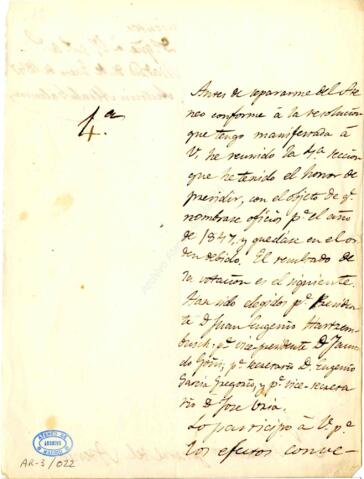 4.a
Antes de separarme del Ate-
neo conforme à la resolucion
que tengo manifestada à
V. he reunido la 4.a seccion
que he tenido el honor de
presidir, con el objeto de q.e
nombrase oficios p.a el año
de 1847, y quedase en el or-
den debido. El resultado de
la votacion es el siguiente.
Han sido elegidos p.a Presiden-
te D. Juan Eugenio Hartzem-
busch, p.a vice-presidente D. Facun-
do Goñi, p.a secretario D. Eugenio
Garcia Gregorio, y p.a vice-secreta-
rio D. Jose Oria.
Lo participo à V. p.a
los efectos conve-
ATENEO DE
ARCHIVO
MADRID
AR-3/022